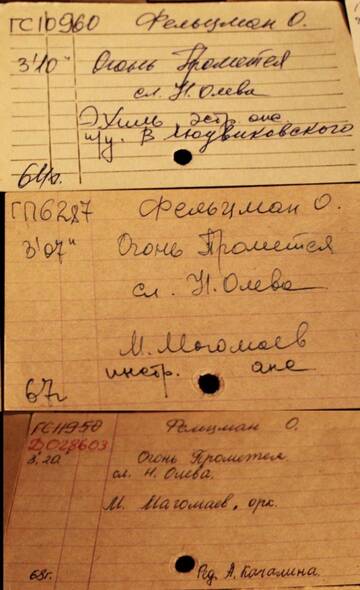 ГС10960 Фельцман О.
3'10" Огонь Прометея
сл. Н. Олева
Э Хиль, эстр. анс.
п/у. В Людвиковского
ГП6287 Фельцман О.
3'07" Огонь Прометея
сл. Н. Олева
М. Магомаев
инстр. анс
67г
ГС11950 Фельцман О.
Д028603
3,20 Огонь Прометея
сл. Н. Олева.
М. Магомаев, орк.
68г. Ред. А. Качалина.